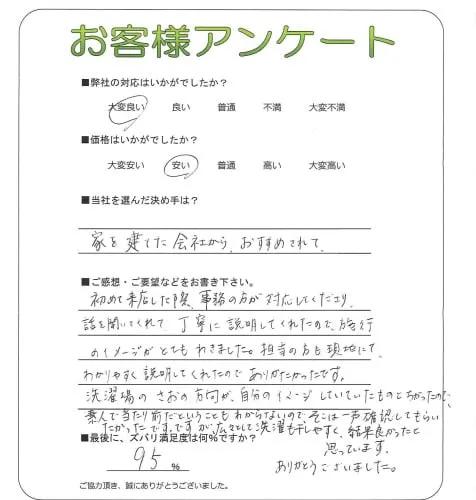 お客様アンケート
■弊社の対応はいかがでしたか?
大変良い 良い 普通 不満 大変不満
■価格はいかがでしたか?
大変安い 安い 普通 高い 大変高い
■当社を選んだ決め手は?
家を建てた会社から、おすすめされて、
■ご感想・ご要望などをお書き下さい。
初めて来店した際、事務の方が対応してくださり、
話を聞いてくれて 丁寧に説明してくれたので、施行
のイメージがとてもわきました。担当の方も現地にて、
わかりやすく説明してくれたのでありがたかったです。
洗濯場のさおの方向が、自分のイメージしていたものとちがったので、
素人で当たり前だということもわからないので、そこは一声確認してもらい
たかったです。ですが、広々として洗濯も干しやすく、結果良かったと
思っています。
ありがとうございました。
■最後に、ズバリ満足度は何%ですか?
95 %
ご協力頂き、誠にありがとうございました。